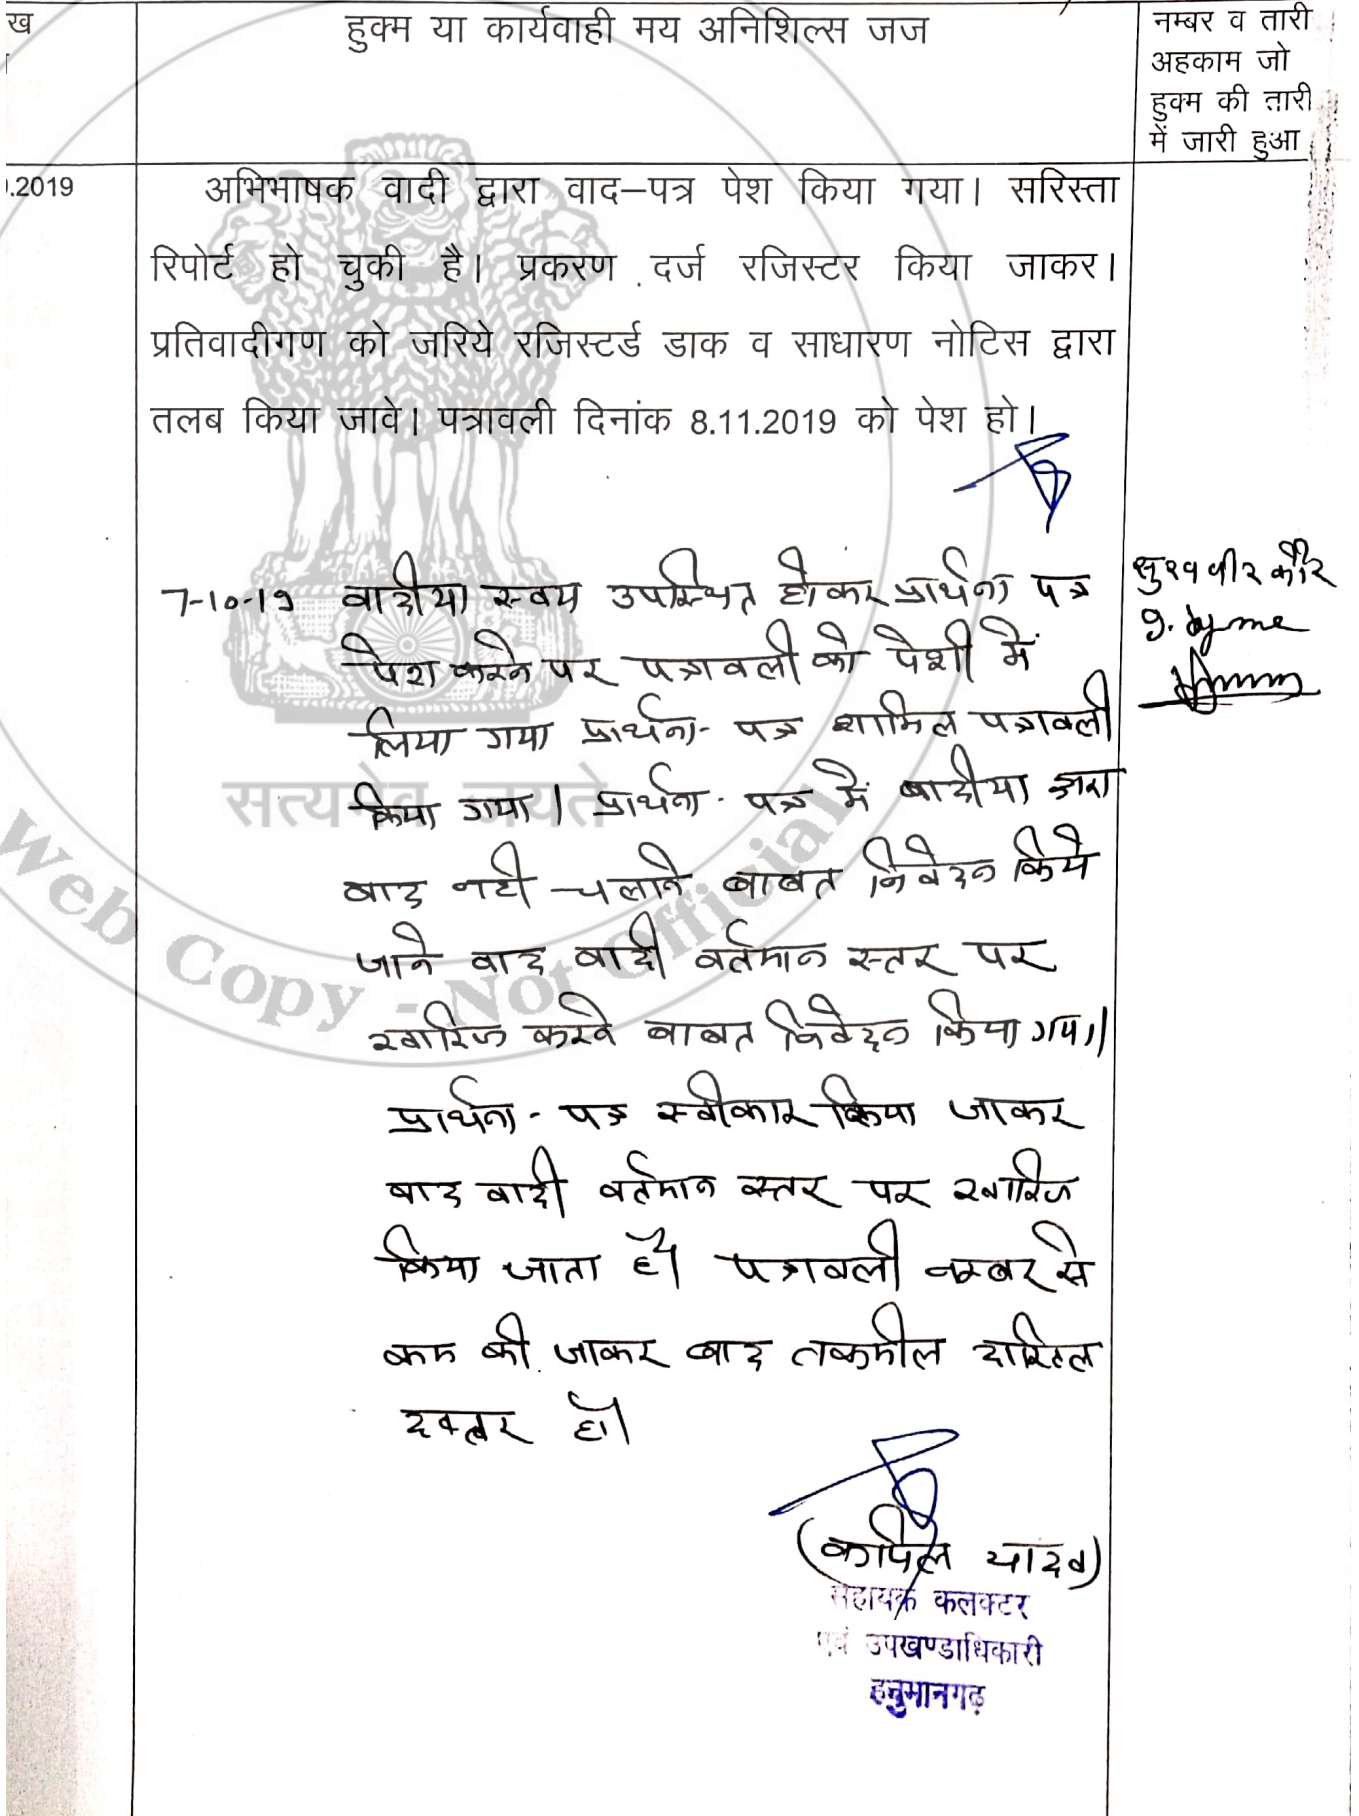 ख
हुक्म या कार्यवाही मय अनिशिल्स जज
नम्बर व तारी
अहकाम जो
हुक्म की तारी
में जारी हुआ
.2019
अभिभाषक वादी द्वारा वाद–पत्र पेश किया गया। सरिस्ता
रिपोर्ट हो चुकी है। प्रकरण दर्ज रजिस्टर किया जाकर।
प्रतिवादीगण को जरिये रजिस्टर्ड डाक व साधारण नोटिस द्वारा
तलब किया जावे। पत्रावली दिनांक 8.11.2019 को पेश हो।
7-10-19 वादीया स्वयं उपस्थित होकर प्रार्थना पत्र
पेश करने पर पत्रावली को पेशी में
लिया गया प्रार्थना- पत्र शामिल पत्रावली
किया गया। प्रार्थना- पत्र में वादीया द्वारा
वाद नही चलाने बाबत निवेदन किये
जाने वाद वादी वर्तमान स्तर पर
खारिज करने बाबत निवेदन किया गया।
प्रार्थना- पत्र स्वीकार किया जाकर
वाद वादी वर्तमान स्तर पर खारिज
किया जाता है। पत्रावली नम्बर से
कम की जाकर बाद तकमील दाखिल
दफ्तर हो।
सुखवीर कौर
(कपिल यादव)
सहायक कलक्टर
एवं उपखण्डाधिकारी
हनुमानगढ़
सत्यमेव जयते
Web Copy - Not Official